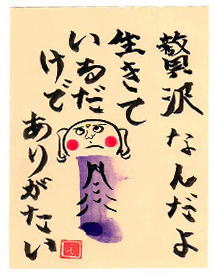 贅沢なんだよ
生きて
いるだ
けで
ありがたい